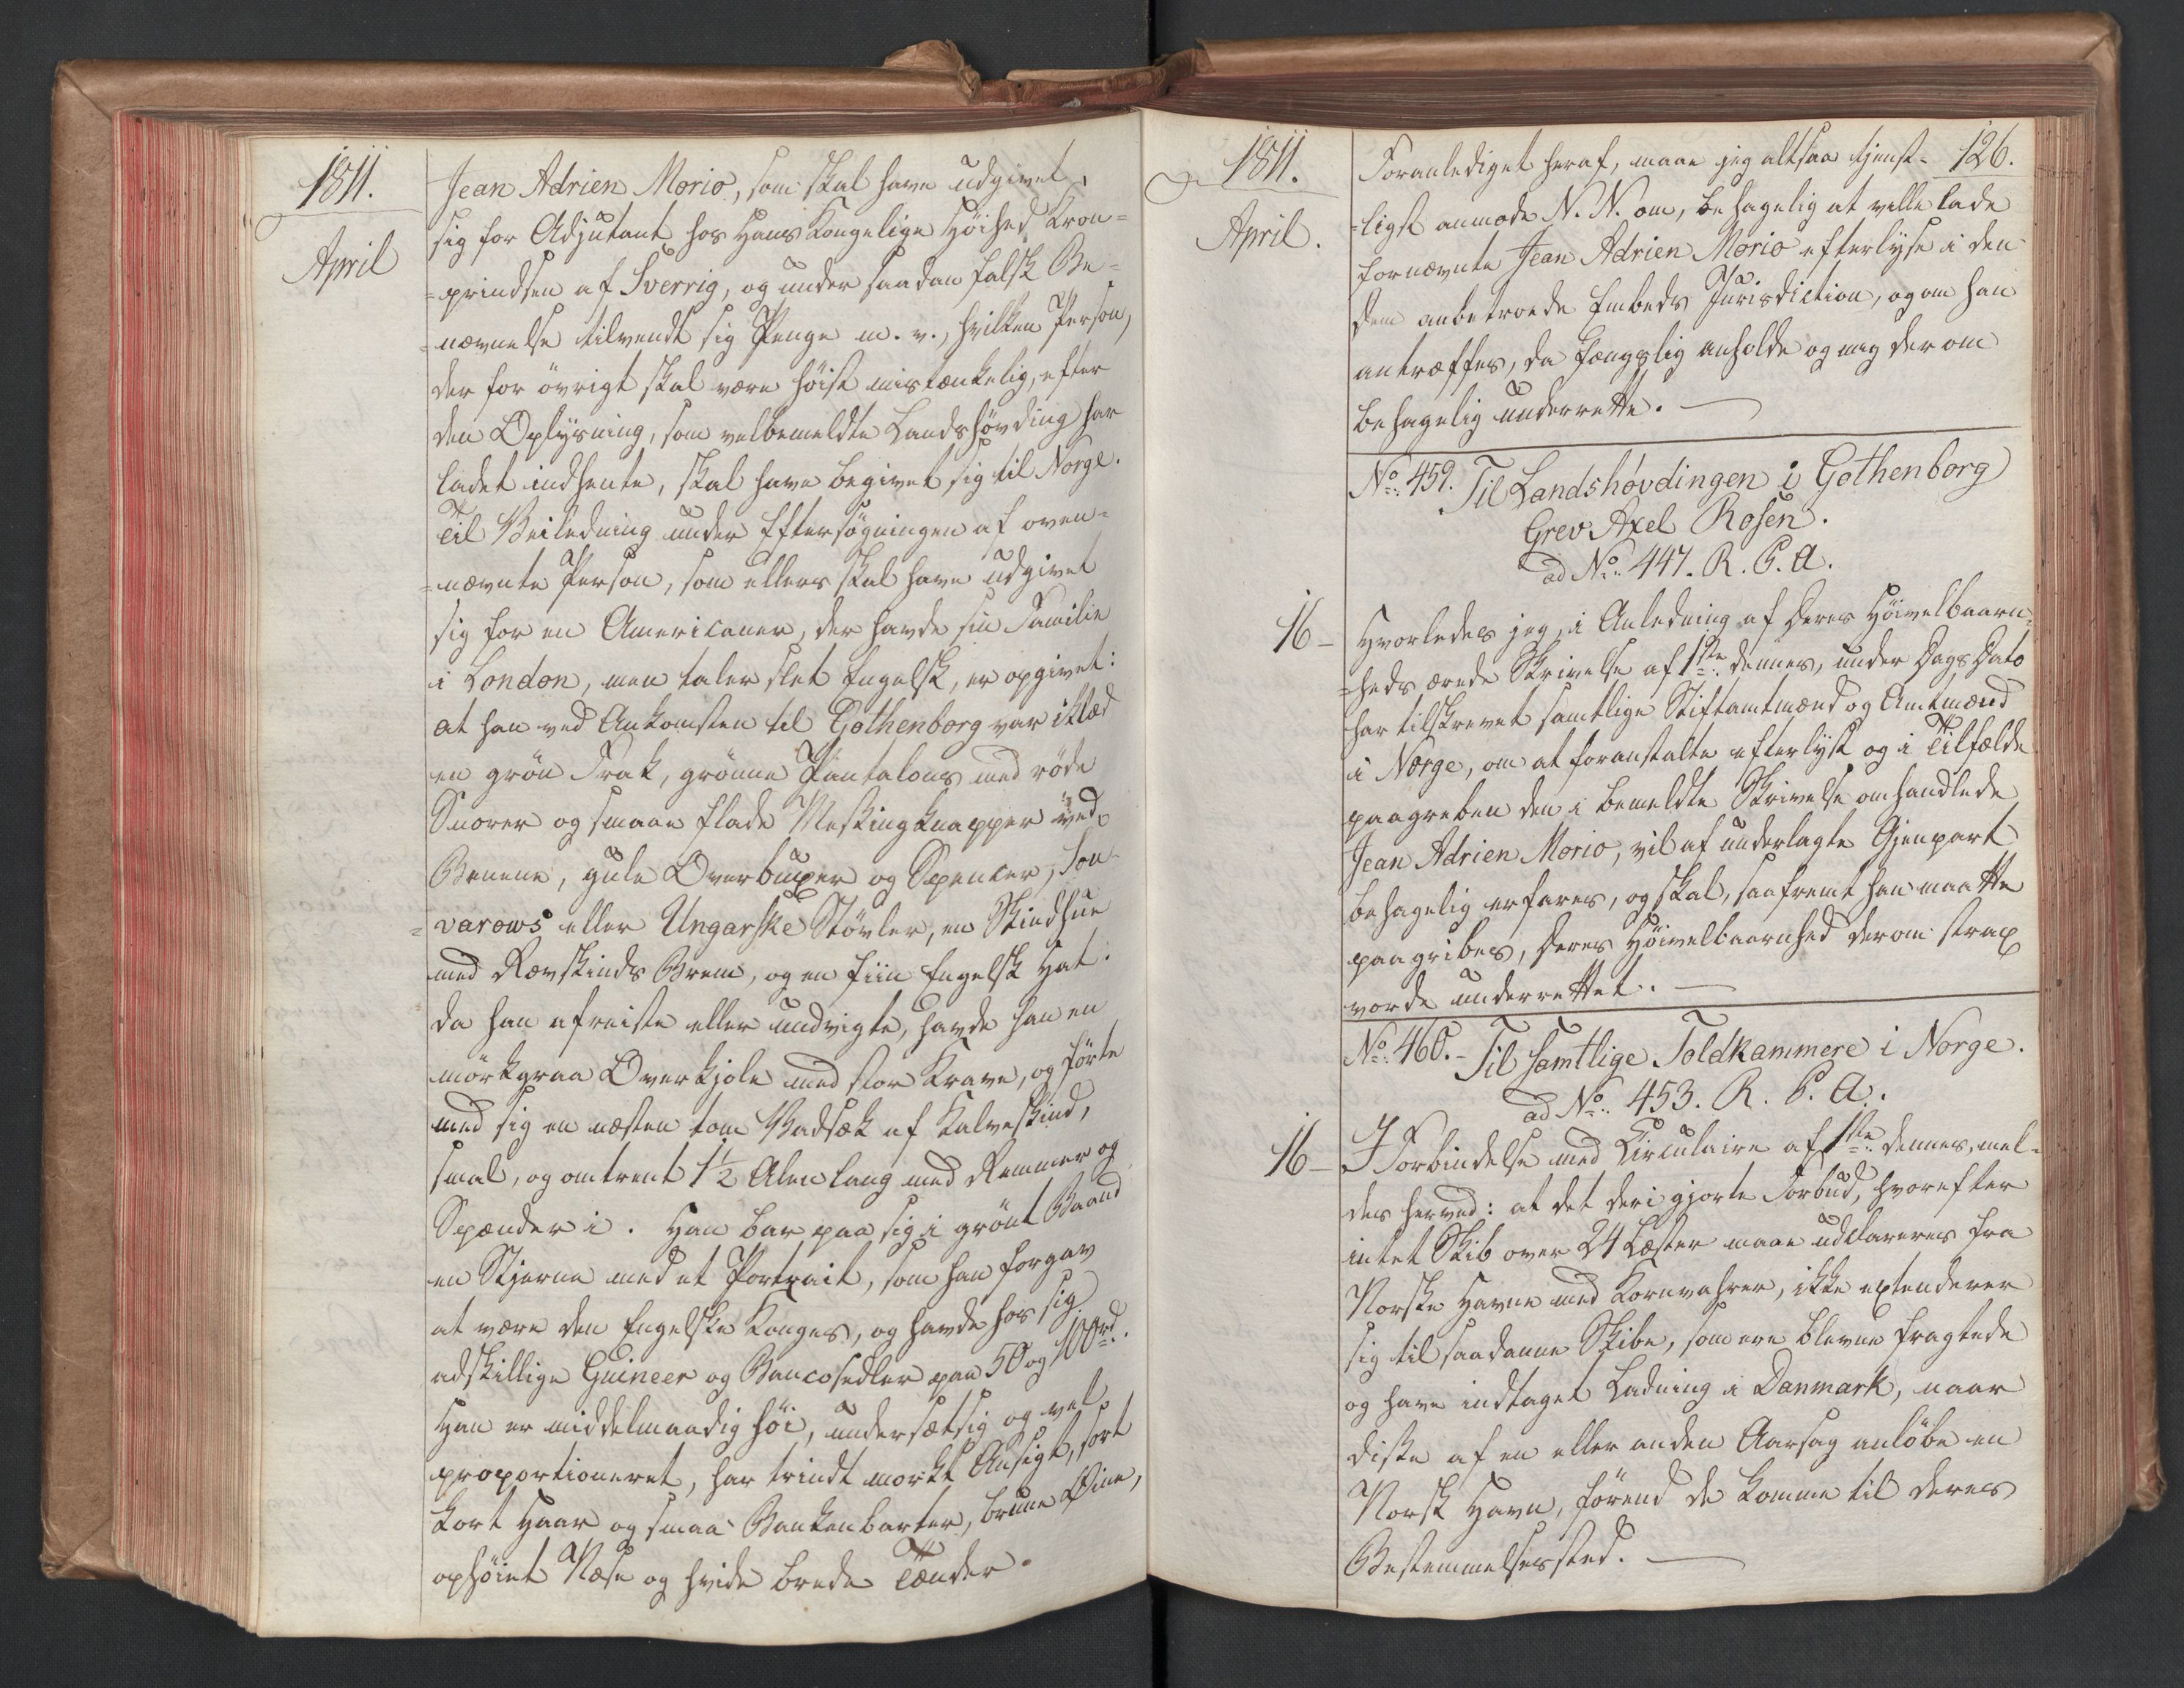 1811.
April
Jean Adrien Morio, som skal have udgivet
sig for Adjutant hos Hans Kongelige Höihed Kron-
-prindsen af Sverrig, og under saadan falsk Be-
-nævnelse tilvendt sig Penge m. v., hvilken Person,
der for övrigt skal være höist mistænkelig, efter
den Oplysning, som velbemeldte Landshövding har
ladet indhente, skal have begivet sig til Norge.
Til Veiledning under Eftersögningen af oven-
-nævnte Person, som ellers skal have udgivet
sig for en Americaner, der havde sin Familie
i London, men taler slet Engelsk, er opgivet:
at han ved Ankomsten til Gothenborg var iklæd
en grön Frak, grönne Pantalons med röde
Snorer og smaae flade Messingknapper ved
Benene, gule Overbuxer og Spencer, Sou-
-varows eller Ungarske Stövler, en Skindhue
med Rævskinds Brem, og en fiin Engelsk Hat.
da han afreiste eller undvigte, havde han en
mörkgraa Overkjole med stor Krave, og förte
med sig en næsten tom Vadsæk af Kalveskind,
smal, og omtrent 1½ Alen lang med Remmer og
Spænder i. Han bar paa sig i grönt Baand
en Stjerne med et Portrait, som han forgav
at være den Engelske Konges, og havde hos sig
adskillige Guineer og Bancosedler paa 50 og 100 rd.
Han er middelmaadig höi, undersætsig og vel
proportioneret, har trindt morkt Ansigt, sort
kort Haar og smaa Bakkenbarter, brune Öine,
ophöiet Næse og hvide brede Tænder.
1811.
April.
126.
Foranlediget heraf, maae jeg altsaa tjenst-
-ligst anmode N. N. om, behagelig at ville lade
fornævnte Jean Adrien Morio efterlyse i den
Dem anbetroede Embeds Jurisdiction, og om han
antræffes, da fængslig anholde og mig derom
behagelig underrette.
No. 459. Til Landshövdingen i Gothenborg
Grev Axel Rosen.
ad No. 447. R. P. A.
16 -
Hvorledes jeg, i Anledning af Deres Höivelbaarn-
-heds ærede Skrivelse af 1ste dennes, under Dags Dato
har tilskrevet samtlige Stiftamtmænd og Amtmænd
i Norge, om at foranstalte efterlyst og i Tilfælde
paagreben den i bemeldte Skrivelse omhandlede
Jean Adrien Morio, vil af underlagte Gjenpart
behagelig erfares, og skal, saafremt han maatte
paagribes, Deres Höivelbaarnhed derom strax
vorde underrettet.
No. 460. - Til samtlige Toldkammere i Norge.
ad No. 453. R. P. A.
16 -
I Forbindelse med Circulaire af 1ste dennes, mel-
des herved: at det deri gjorte Forbud, hvorefter
intet Skib over 24 Læster maae udclareres fra
Norske Havne med Kornvahrer, ikke extenderer
sig til saadanne Skibe, som ere blevne fragtede
og have indtaget Ladning i Danmark, naar
disse af en eller anden Aarsag anlöbe en
Norsk Havn, förend de komme til deres
Bestemmelsessted.